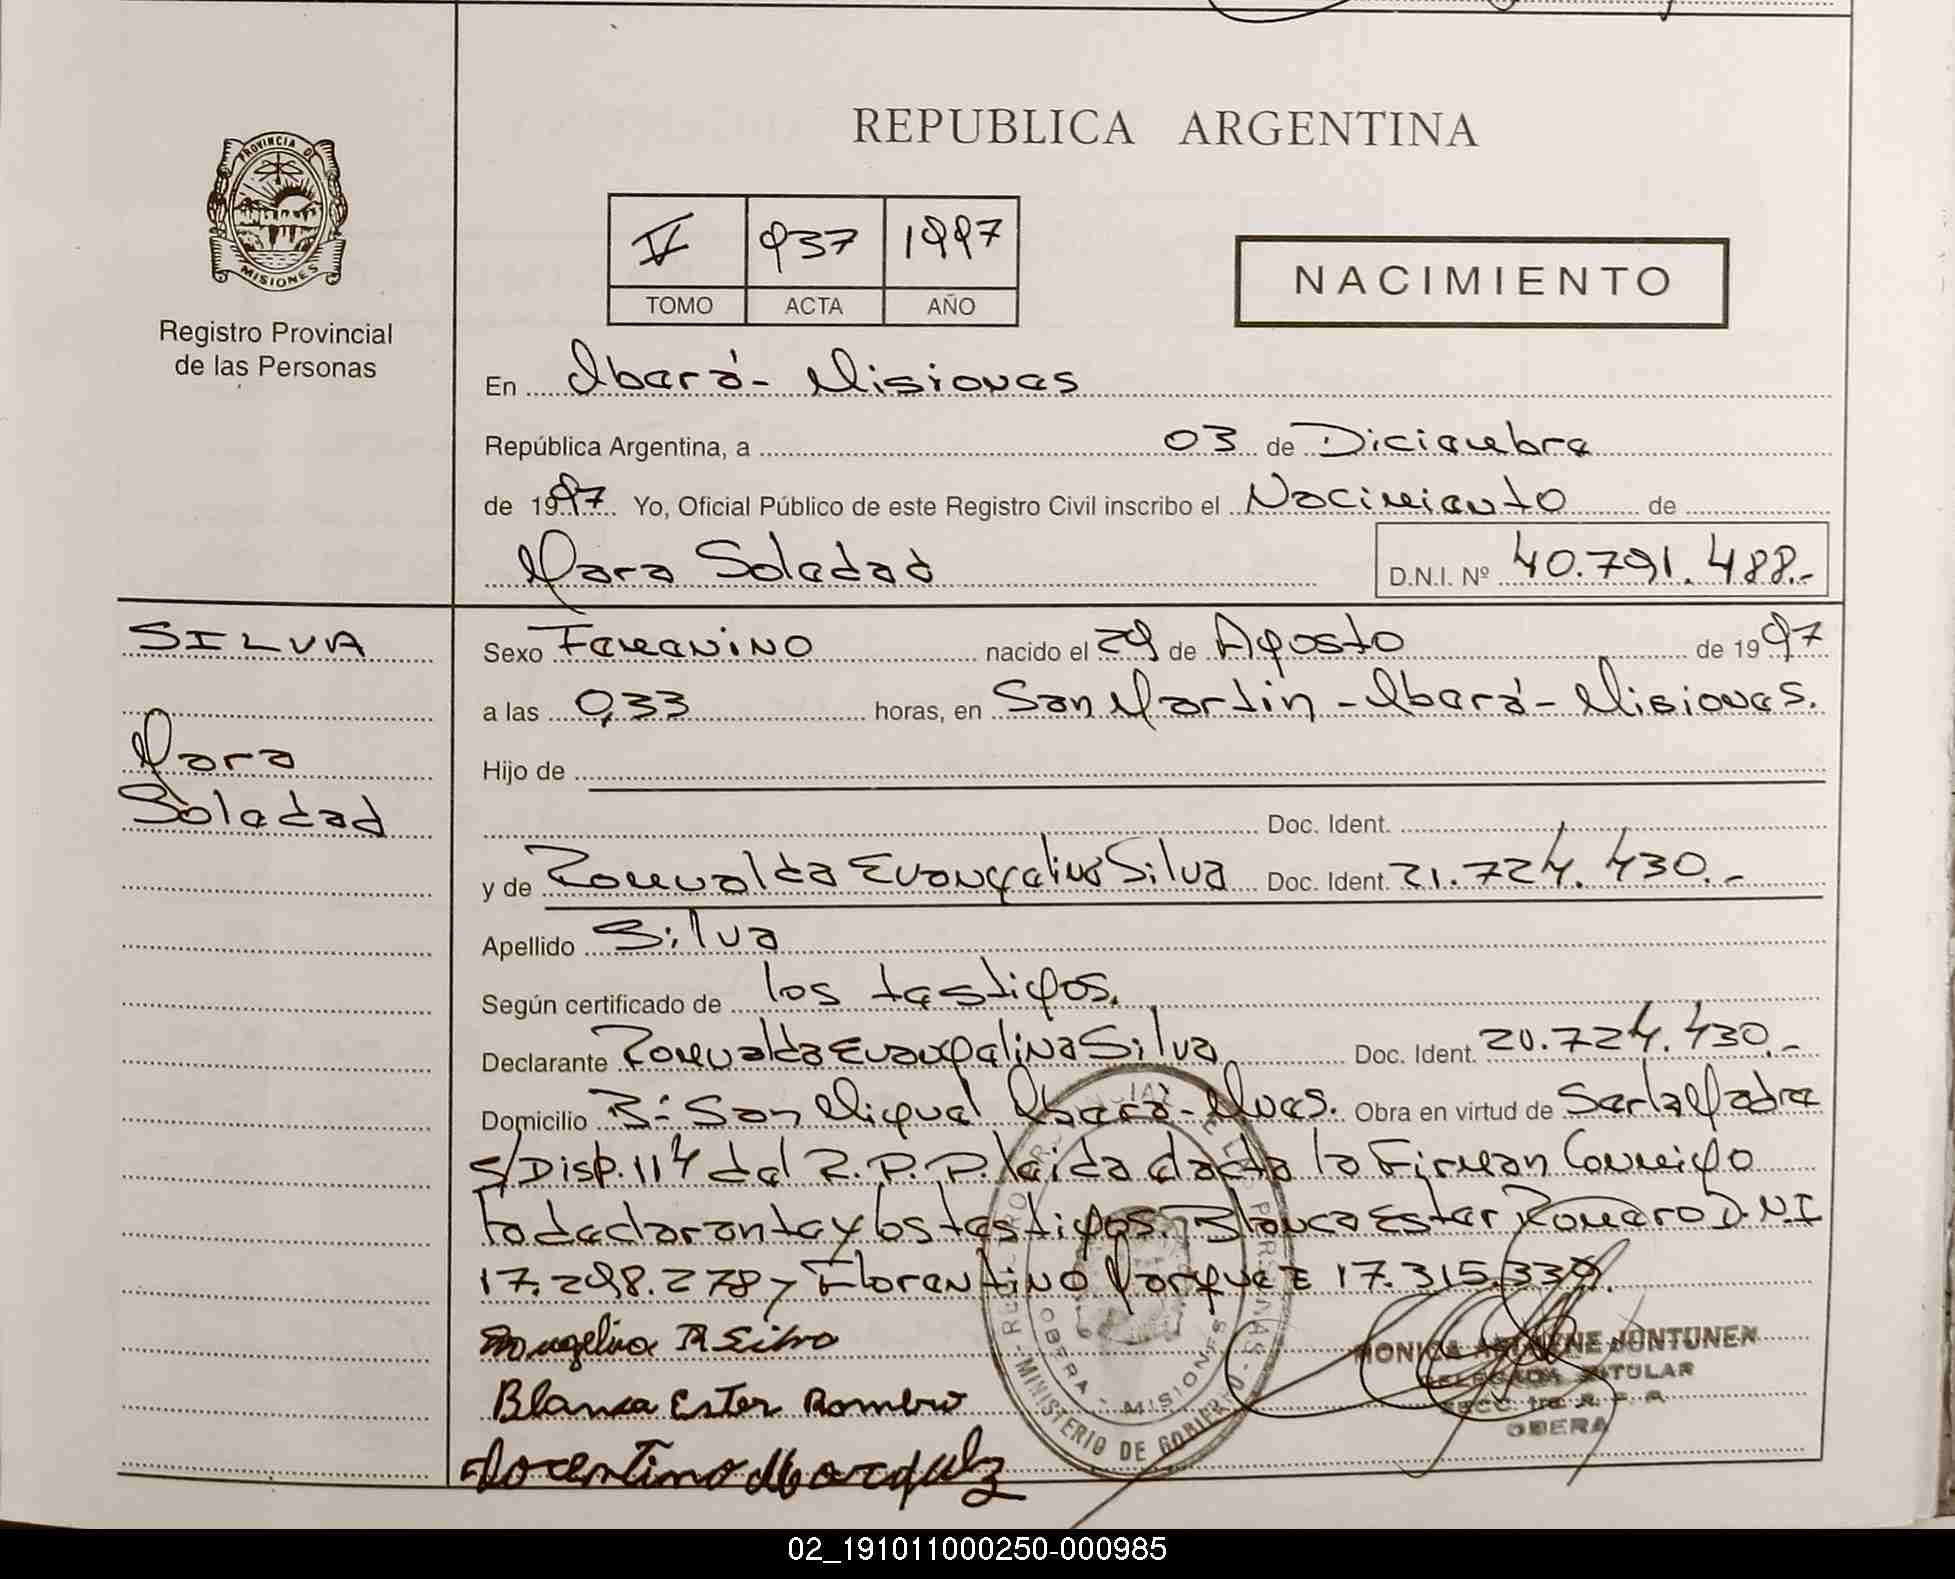 REPUBLICA ARGENTINA
PROVINCIA D
MISIONES
Registro Provincial
de las Personas
V 937 1997
TOMO ACTA AÑO
NACIMIENTO
En Oberá - Misiones
República Argentina, a 03 de Diciembre
de 1997 Yo, Oficial Público de este Registro Civil inscribo el Nacimiento de
Mara Soledad D.N.I. Nº 40.791.488.-
SILVA
Mara
Soledad
Sexo Femenino nacido el 29 de Agosto de 1997
a las 0,33 horas, en San Martín - Oberá - Misiones.
Hijo de
Doc. Ident.
y de Romualda Evangelina Silva Doc. Ident. 21.724.430.-
Apellido Silva
Según certificado de los testigos.
Declarante Romualda Evangelina Silva Doc. Ident. 20.724.430.-
Domicilio Bº San Miguel Oberá - Mnes. Obra en virtud de Serla Madre
s/Disp. 114 del R.P.P. leida el acta la Firman Conmigo
la declarante y los testigos. Blanca Ester Romero D.N.I
17.298.278 y Florentino Marquez 17.315.339.
Blanca Ester Romero
Florentino Marquez
MONICA JUNTUNEN
DELEGADA TITULAR
SECC. 1ra R. P. P.
OBERA
MINISTERIO DE GOBIERNO
OBERA - MISIONES
02_191011000250-000985